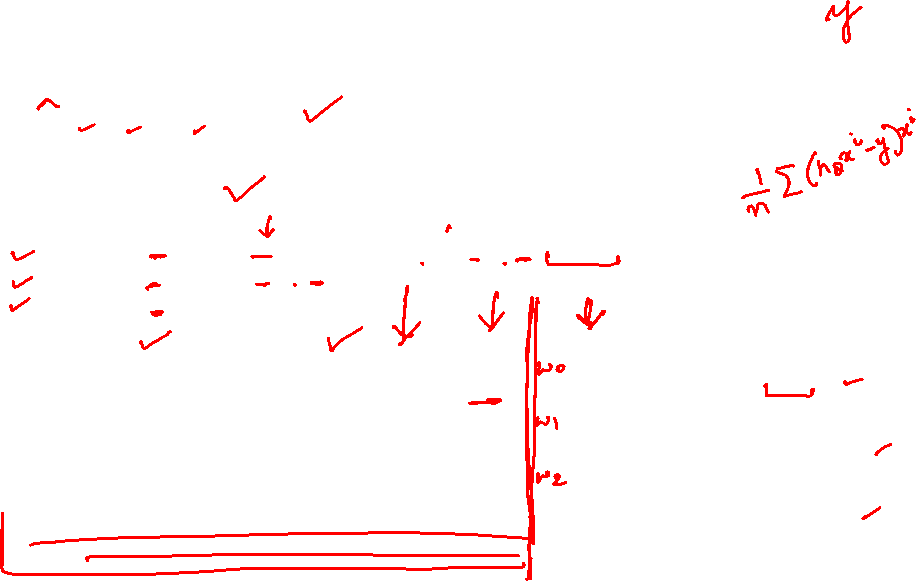 y
1/n Σ(hθx^i-y)x^i
w0
w1
w2